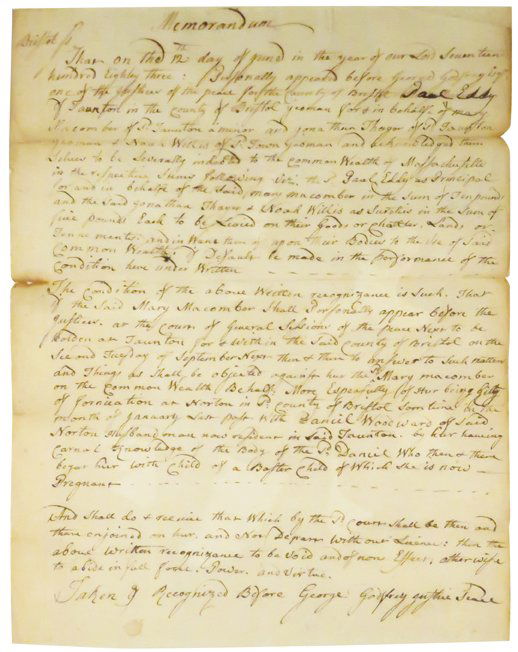 Memorandum
Bristol Ss
That on the 12th day of June in the year of our Lord Seventeen
hundred Eighty three: Personally appeared before George Godfrey Esqr
one of the Justices of the peace for the County of Bristol Paul Eddy
of Taunton in the county of Bristol yeoman for & in behalf of mary
Macomber of sd Taunton a minor and Jonathan Thayer of sd Taunton
yeoman & Noah Willis of sd Town yeoman and acknowledged them
Selves to be Severally indebted to the common Wealth of Massachusetts
in the respective Sums following Viz. the sd Paul Eddy as Principal
for and in behalfe of the Said mary macomber in the Sum of Ten pounds
and the Said Jonathan Thayer & Noah Willis as Sureties in the Sum of
five pounds Each to be Levied on their Goods or Chattes, Lands or
Tenements: and in Want there of upon their Bodies to the Use of Said
Common Wealth if Default be made in the performance of the
Condition here under Written
The Condition of the above Written recognizance is Such. That
if the Said Mary Macomber Shall Personally appear before the
Justices. at the Court of General Sessions of the peace Next to be
holden at Taunton for & with in the Said County of Bristol on the
Second Tuesday of September Next then & there to answer to Such matters
and Things as Shall be objected against her the sd Mary macomber
on the Common Wealth Behalf, More Especially of Her being Gilty
of fornication at Norton in sd County of Bristol Som time in the
month of January Last past with Daniel Woodward of Said
Norton Husbandman now resident in Said Taunton. by her having
Carnal Knowledge of the Body of the sd Daniel Who then & there
begat her with Child of a Baster Child of Which She is now
Pregnant
And Shall do & receive that Which by the sd Court Shall be then and
there enjoined on her. and Not Depart with out Licence: then the
above Written recognizance to be Void and of non Effect, otherwise
to abide in full force: Power. and Virtue.
Taken & Recognized Before George Godfrey Justice Peace